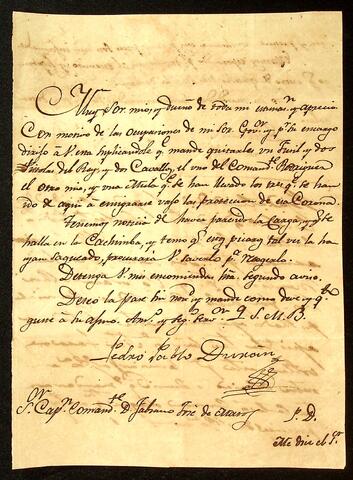 Muy Sor. mio, y dueño de toda mi estimon. y aprecio
Con motivo de las ocupaciones de mi Sor. Gor. y pr. su encargo
dirijo a V. esta suplicandole qe. mande quitarles un Fusil, y dos
Pistolas del Rey, y dos Cavallos, el uno del Comandte. Bozques
el otro mio, y una Mula qe. se han llevado los tres qe. se han
ido de aqui à emigrarse vajo la proteccion de esa Corona.
Tenemos noticia de haver parecido la Carga, y qe. se
halla en la Cachimba, y temo qe. esos picaros tal vez la ha
yan saqueado, procurará V. saverlo pa.
Detenga V. mis encomiendas hta. segundo aviso.
Deseo la pase bien y mande como deve y qe.
guste à su afmo. Amo. y segro. Servor. Q. S. M. B.
Pedro Pablo Durán
Sr. Capn. Comandte. D. Fabiano José de
P. D.
Me dice el Sr.